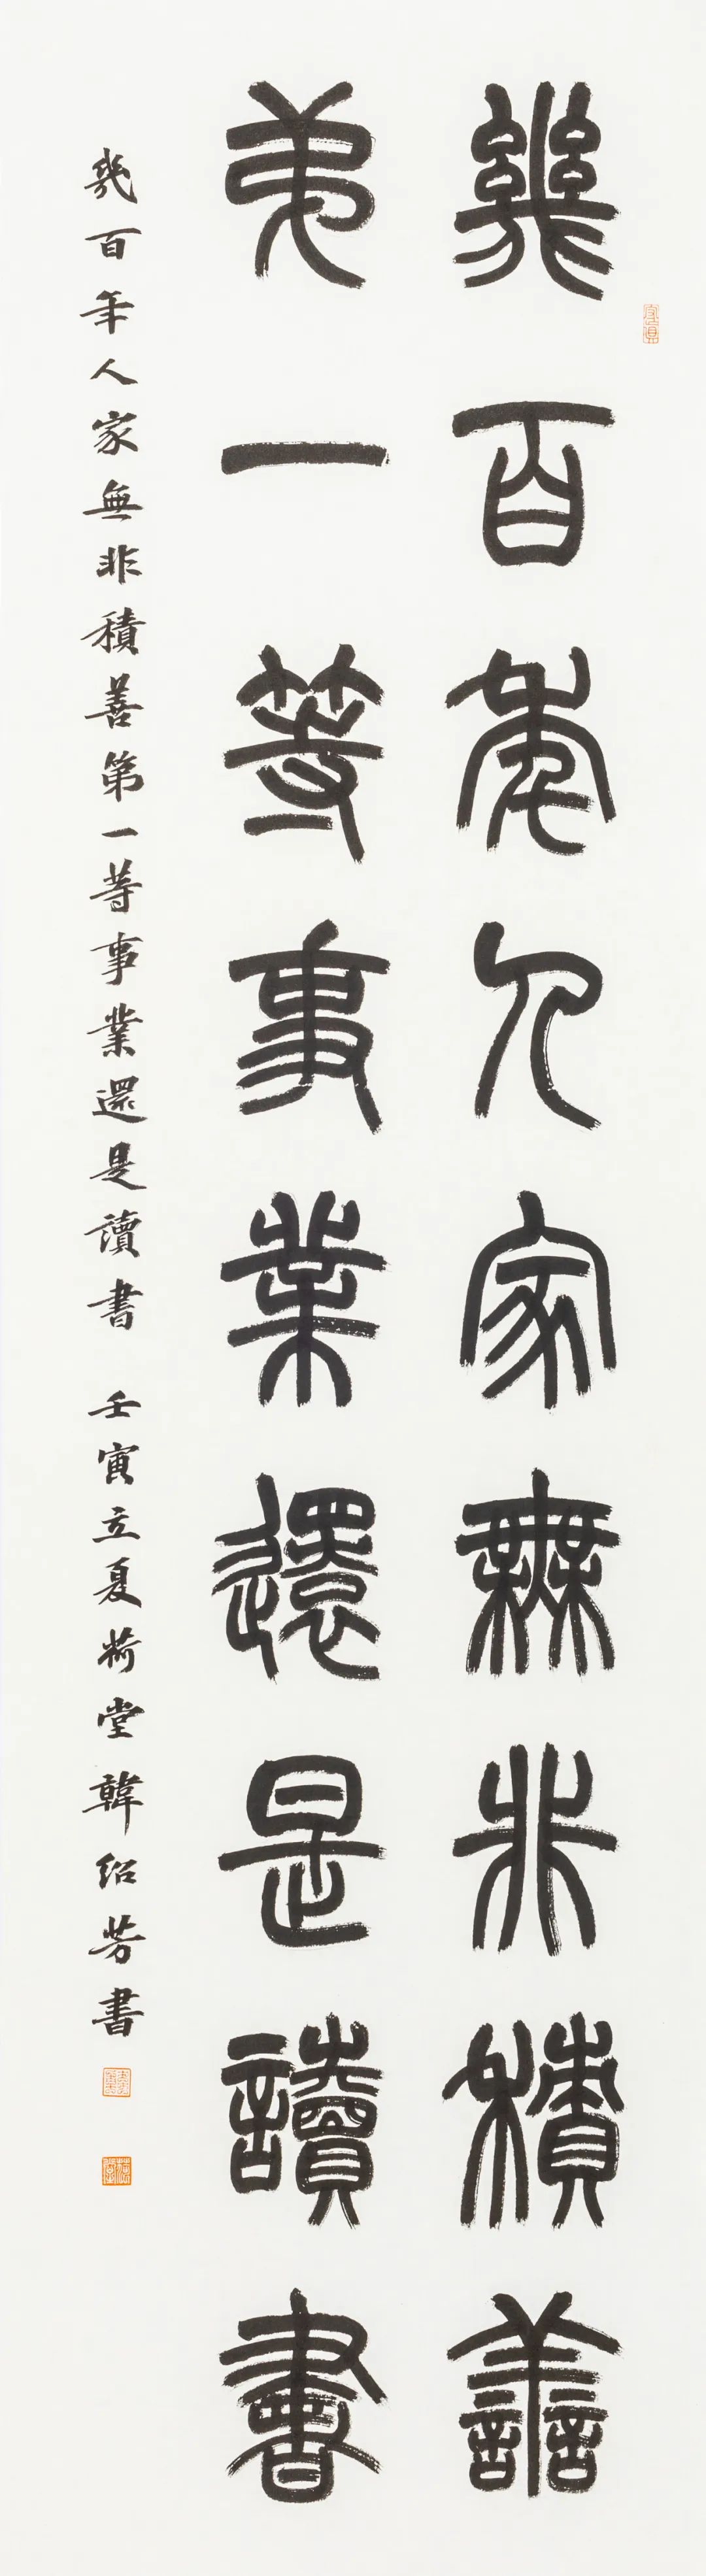 幾百年人家無非積善
弟一等事業還是讀書
幾百年人家無非積善第一等事業還是讀書 壬寅立夏荷堂韓紹芳書